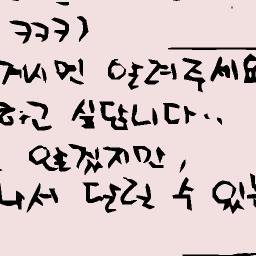 ㅋㅋㅋ)
계시면 알려주세요
하고 싶답니다..
알겠지만,
나서 달릴 수 있는